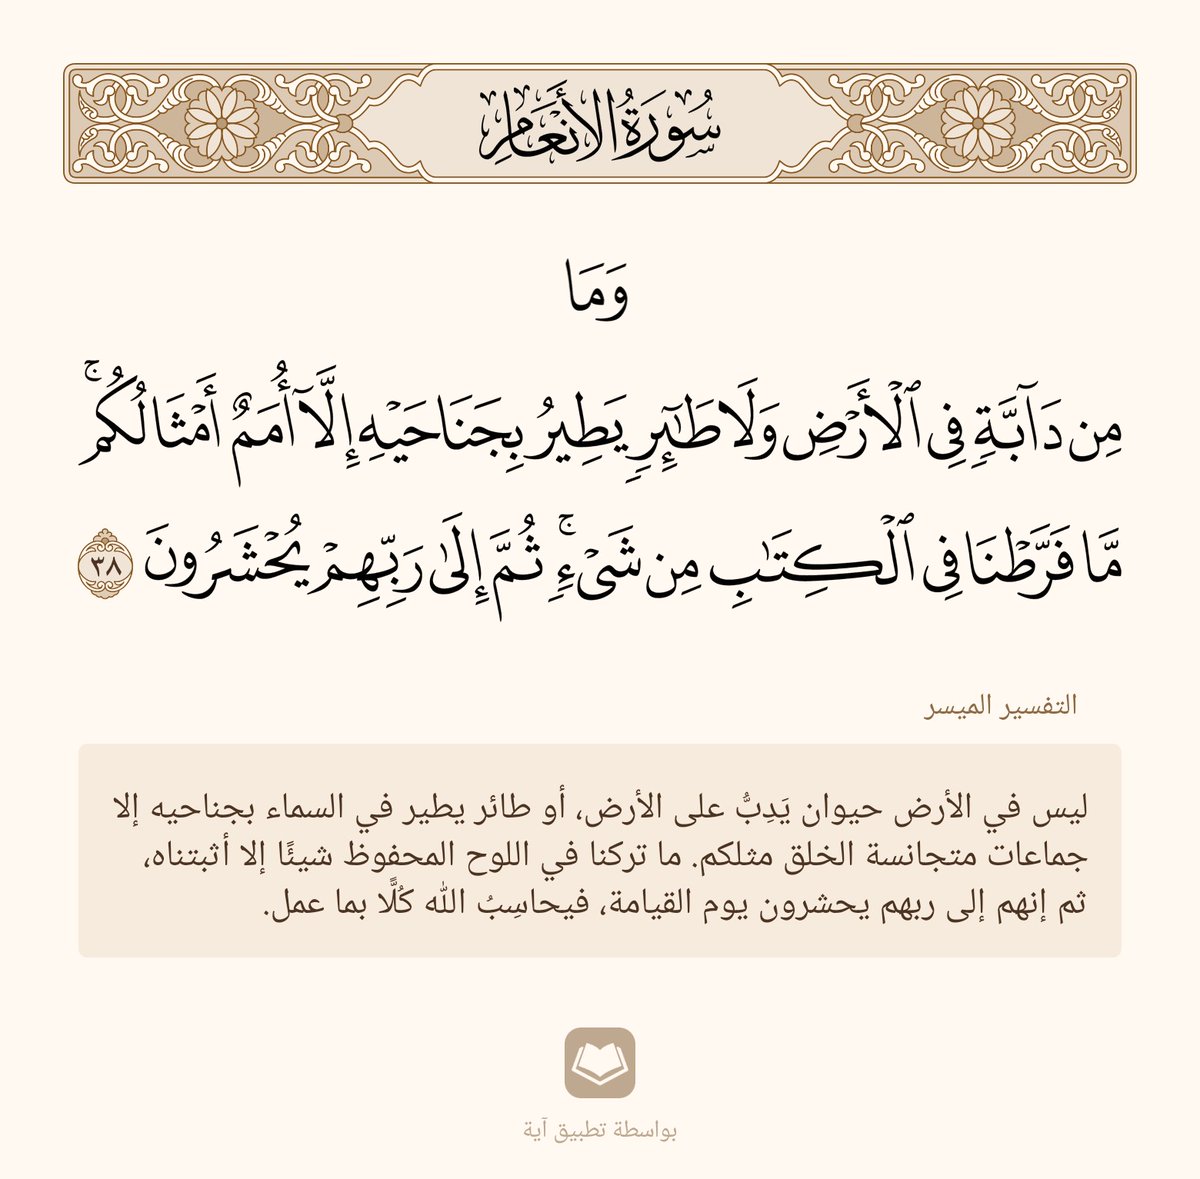 سُورَةُ الأَنْعَامِ
وَمَا
مِن دَآبَّةٖ فِي ٱلۡأَرۡضِ وَلَا طَٰٓئِرٖ يَطِيرُ بِجَنَاحَيۡهِ إِلَّآ أُمَمٌ أَمۡثَالُكُمۚ
مَّا فَرَّطۡنَا فِي ٱلۡكِتَٰبِ مِن شَيۡءٖۚ ثُمَّ إِلَىٰ رَبِّهِمۡ يُحۡشَرُونَ ٣٨
التفسير الميسر
ليس في الأرض حيوان يَدِبُّ على الأرض، أو طائر يطير في السماء بجناحيه إلا
جماعات متجانسة الخلق مثلكم. ما تركنا في اللوح المحفوظ شيئًا إلا أثبتناه،
ثم إنهم إلى ربهم يحشرون يوم القيامة، فيحاسِبُ الله كُلًّا بما عمل.
بواسطة تطبيق آية